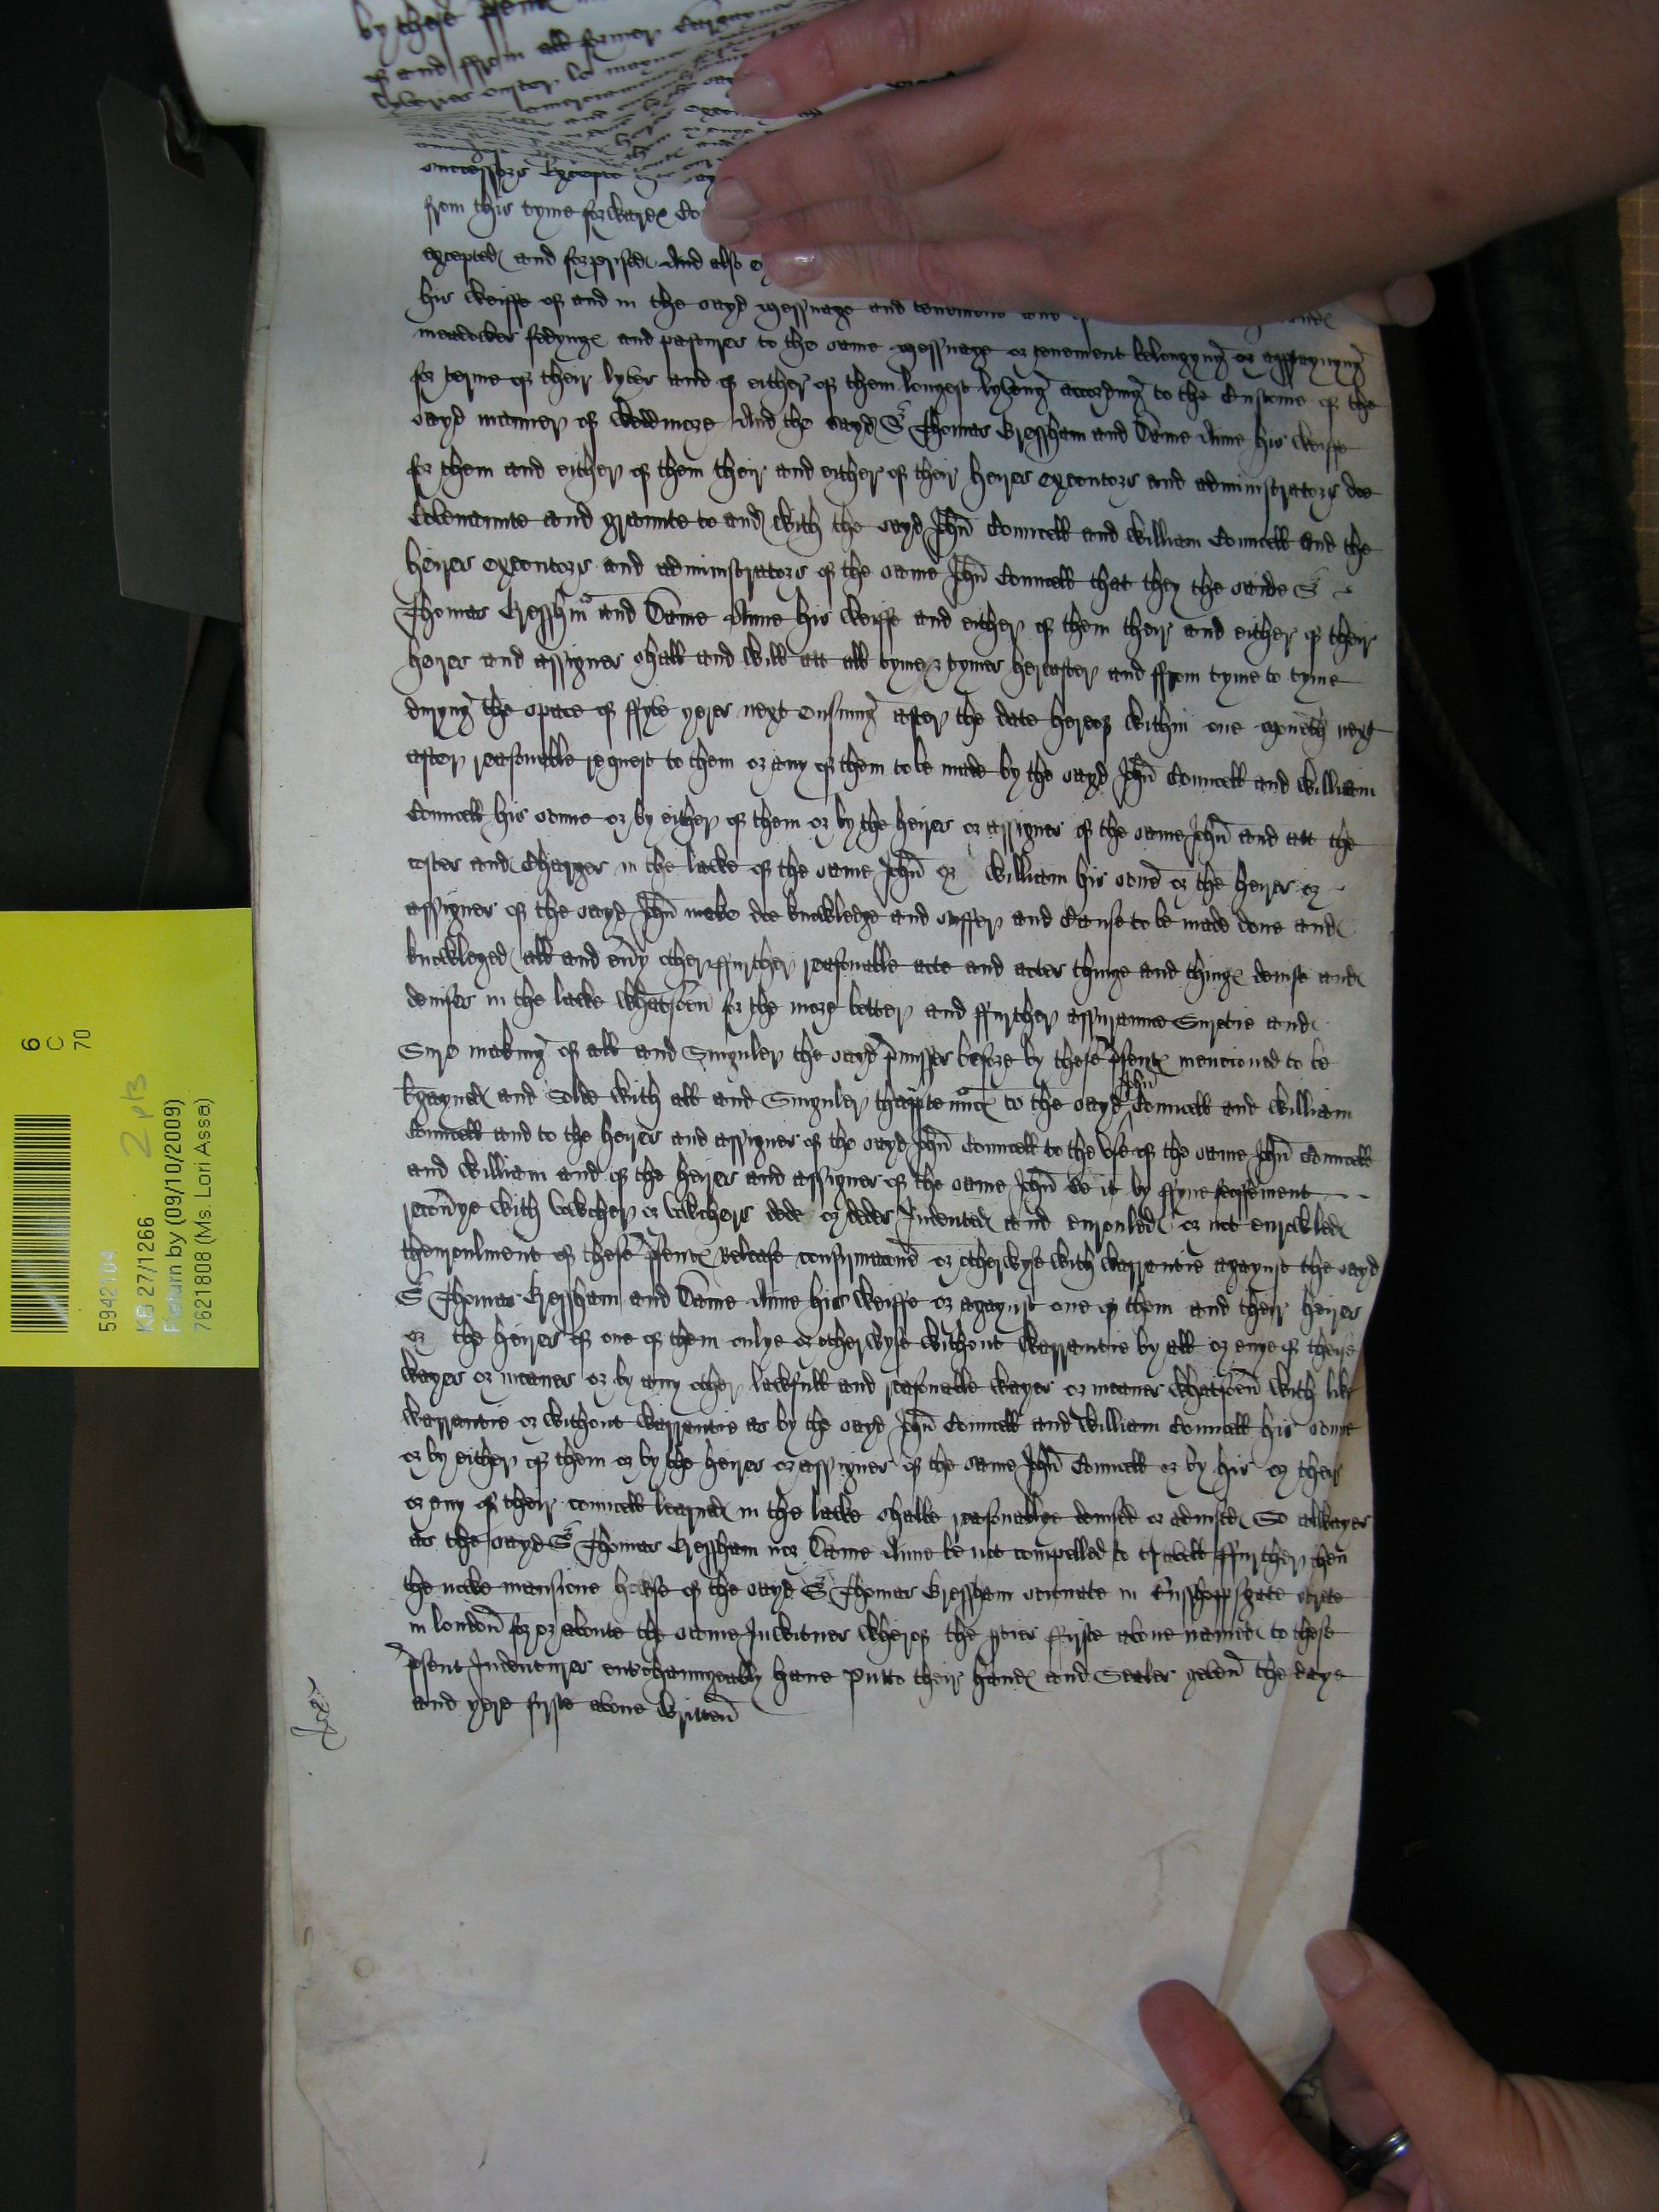 by these
of and ffrom all former
successors Excepte
from this tyme forwarde
excepted and forprised And also
his Weiffe of and in the sayd Messuage and tenement and
meadowes fedynge and pastures to the same Messuage or tenement belongyng or apptaynyng
for terme of their lyves and of either of them longest lyvyng accordyng to the Custome of the
sayd manner of Weddmore And the sayd Sr Thomas Gressham and Dame Anne his Weiffe
for them and either of them their and either of their heires executors and administrators doe
Covenannte and grannte to and with the sayd John Councell and William Councell and the
heires executors and administrators of the same John Councell that they the saide Sr
Thomas Gresshm and Dame Anne his Weiffe and either of them their and either of their
heires and assignes shall and will att all tyme & tymes hereafter and ffrom tyme to tyme
duryng the space of ffyve yeres next Ensuing after the date hereof within one moneth next
after reasonable request to them or any of them to be made by the sayd John Councell and William
Councell his sonne or by either of them or by the heires or assignes of the same John and att the
costes and Charges in the lawe of the same John or William his sone or the heires or
assignes of the sayd John make doe knowledge and suffer and Cause to be made done and
knowleged all and eny other ffurther reasonable acte and actes thinge and thinge devise and
devises in the lawe whatsoeu for the more better and ffurther assurannce Suretie and
Sure making of all and Singuler the sayd pmisses before by these psente mencioned to be
bargayned and Solde with all and Singuler thapptennce to the sayd John Councell and William
Councell and to the heires and assignes of the sayd John Councell to the Use of the same John Councell
and William and of the heires and assignes of the same John be it by ffyne feoffement
recouye with vowcher or vowchers dede or dedes Indented and enrouled or not enrowled
thenroulment of these psente Release confirmacone or otherwyse with warrantie agaynst the sayd
Sr Thomas Gressham and Dame Anne his Weiffe or agaynst one of them and their heires
or the heires of one of them onlye or otherwyse without warrantie by all or enye of these
wayes or meanes or by any other lawfull and reasonable wayes or meanes whatsoeu with like
warrantie or without warrantie as by the sayd John Councell and William Councell his sonne
or by either of them or by the heires or assignes of the same John Councell or by his or their
or any of their councell learned in the lawe shalbe reasonablye devised or advised So allwayes
as the sayd Sr Thomas Gressham nor Dame Anne be not compelled to travell ffurther then
the newe mansione howse of the sayd Sr Thomas Gressham scituate in Busshoppsgate strete
in london for or aboute the same In witnes Wherof the pties ffirste above named to these
psent Indentures entrchanngeably haue putto their hande and Seales yeven the daye
and yere firste above written
6
C
70
2 pts
5942104
KB 27/1266
Return by (09/10/2009)
7621808 (Ms. Lori Assa)